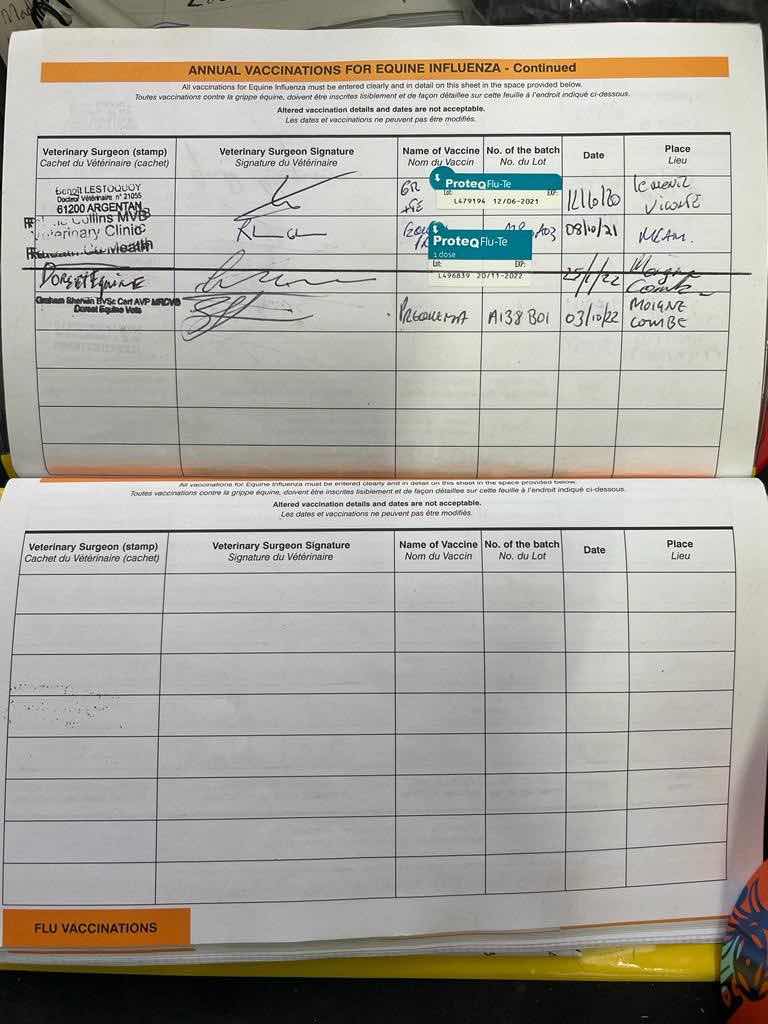 ANNUAL VACCINATIONS FOR EQUINE INFLUENZA - Continued
All vaccinations for Equine Influenza must be entered clearly and in detail on this sheet in the space provided below.
Toutes vaccinations contre la grippe équine, doivent être inscrites lisiblement et de façon détaillées sur cette feuille à l'endroit indiqué ci-dessous.
Altered vaccination details and dates are not acceptable.
Les dates et vaccinations ne peuvent pas être modifiés.
Veterinary Surgeon (stamp) Veterinary Surgeon Signature Name of Vaccine No. of the batch Date Place
Cachet du Vétérinaire (cachet) Signature du Vétérinaire Nom du Vaccin No. du Lot Lieu
Benoît LESTOQUOY
Docteur Vétérinaire n° 21055
61200 ARGENTAN
ProteqFlu-Te
Lot: EXP:
L479194 12/06-2021
12/10/20
Collins MVB
Veterinary Clinic
Co Meath
ProteqFlu-Te
1 dose
Lot: EXP:
L496839 20/11-2022
A03
08/10/21
MEATH.
DORSET EQUINE
25/1/22
Moigne
Combe
Graham Sherwin BVSc Cert AVP MRCVS
Dorset Equine Vets
PREQUENZA A138 B01 03/10/22 MOIGNE
COMBE
All vaccinations for Equine Influenza must be entered clearly and in detail on this sheet in the space provided below.
Toutes vaccinations contre la grippe équine, doivent être inscrites lisiblement et de façon détaillées sur cette feuille à l'endroit indiqué ci-dessous.
Altered vaccination details and dates are not acceptable.
Les dates et vaccinations ne peuvent pas être modifiés.
Veterinary Surgeon (stamp) Veterinary Surgeon Signature Name of Vaccine No. of the batch Date Place
Cachet du Vétérinaire (cachet) Signature du Vétérinaire Nom du Vaccin No. du Lot Lieu
FLU VACCINATIONS